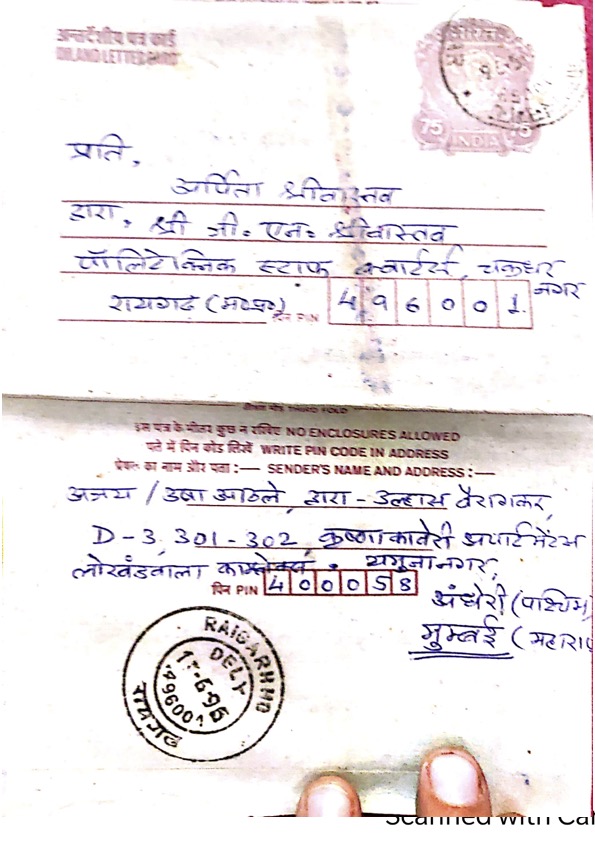 अन्तर्देशीय पत्र कार्ड
INLAND LETTER CARD
75 75
INDIA
प्रति,
अर्पिता श्रीवास्तव
द्वारा, श्री जी. एन. श्रीवास्तव
पॉलिटेक्निक स्टाफ क्वार्टर्स, चक्रधर
नगर
रायगढ़ (म०प्र०) पिन PIN 496001
तीसरा मोड़ THIRD FOLD
इस पत्र के भीतर कुछ न रखिए NO ENCLOSURES ALLOWED
पते में पिन कोड लिखें WRITE PIN CODE IN ADDRESS
प्रेषक का नाम और पता :— SENDER'S NAME AND ADDRESS :—
अजय / उषा आठले, द्वारा - उल्हास वैरागकर,
D-3, 301-302, कृष्णा कावेरी अपार्टमेंटस
लोखंडवाला काम्प्लेक्स, यमुनानगर,
पिन PIN 400058
अंधेरी (पश्चिम)
मुम्बई (महारा
RAIGARH MD
DELY
496001
रायगढ़
Scanned with Ca